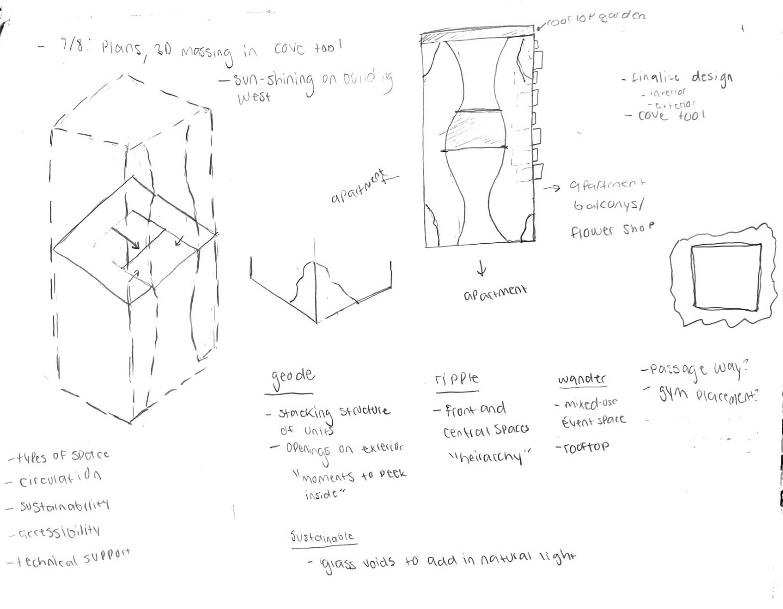 - 7/8: Plans, 3D massing in cove tool
- sun-shining on building
west
rooftop garden
- finalize design
- interior
- exterior
- cove tool
apartment
→ apartment
balconys/
flower shop
apartment
geode
- stacking structure
of units
- openings on exterior
"moments to peek
inside"
ripple
- front and
central spaces
"heirarchy"
wander
- mixed-use
event space
- rooftop
- passage way?
- gym placement?
- types of space
- circulation
- sustainability
- accessibility
- technical support
sustainable
- glass voids to add in natural light